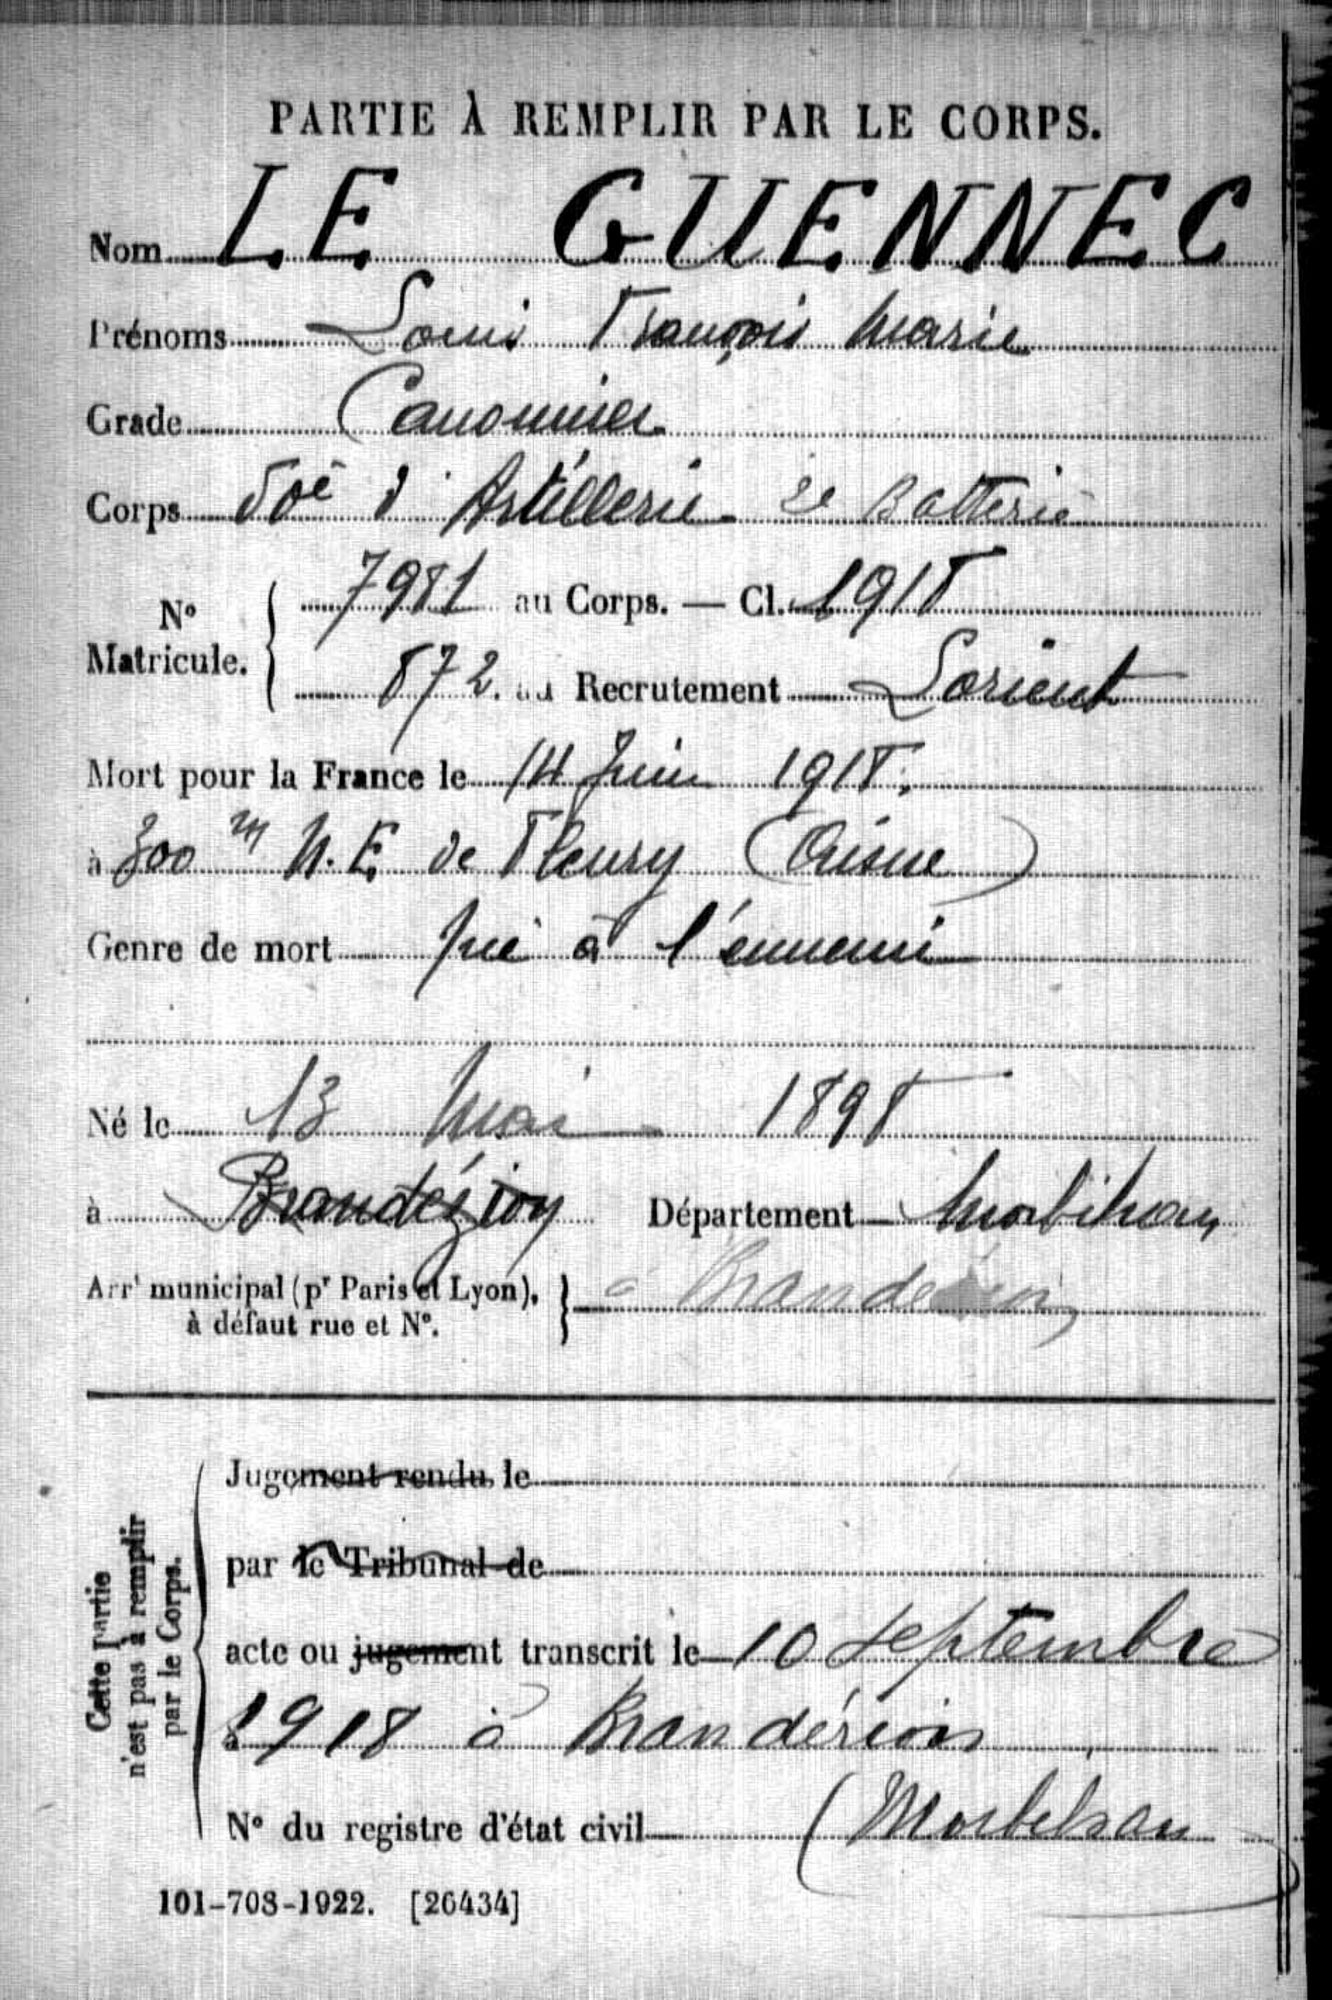 PARTIE À REMPLIR PAR LE CORPS.
Nom LE GUENNEC
Prénoms Louis François Marie
Grade Canonnier
Corps 50e d'Artillerie 2e Batterie
N° Matricule. 7981 au Corps. — Cl. 1918
872. au Recrutement Lorient
Mort pour la France le 14 Juin 1918.
à 300 m N.E de Fleury (Aisne)
Genre de mort Tué à l'ennemi
Né le 13 Mai 1898
à Brandézion Département Morbihan
Arrt municipal (pr Paris et Lyon), à défaut rue et N°. à
Jugement rendu le
par le Tribunal de
acte ou jugement transcrit le 10 septembre
à 1918 à Brandérion
N° du registre d'état civil (Morbihan
Cette Partie n'est pas à remplir par le Corps.
101-708-1922. [26434]